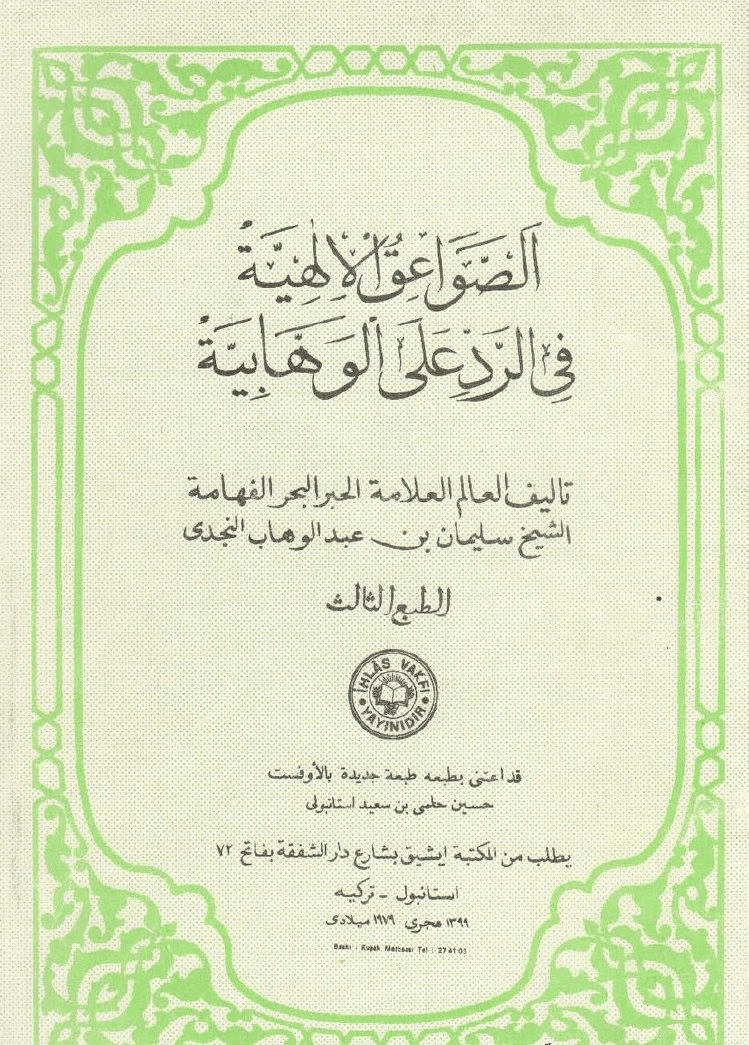 اَلصَّوَاعِقُ الْإِلٰهِيَّة
فِي الرَّدِّ عَلَى الْوَهَّابِيَّة
تاليف العالم العلامة الحبر البحر الفهامة
الشيخ سليمان بن عبد الوهاب النجدى
الطبع الثالث
İHLÂS VAKFI YAYINIDIR
قد اعتنى بطبعه طبعة جديدة بالأوفست
حسين حلمى بن سعيد استانبولى
يطلب من المكتبة ايشيق بشارع دار الشفقة بفاتح ٧٢
استانبول - تركيه
١٣٩٩ هجرى ١٩٧٩ ميلادى
Baskı : Kuşak Matbaası Tel : 27 41 03